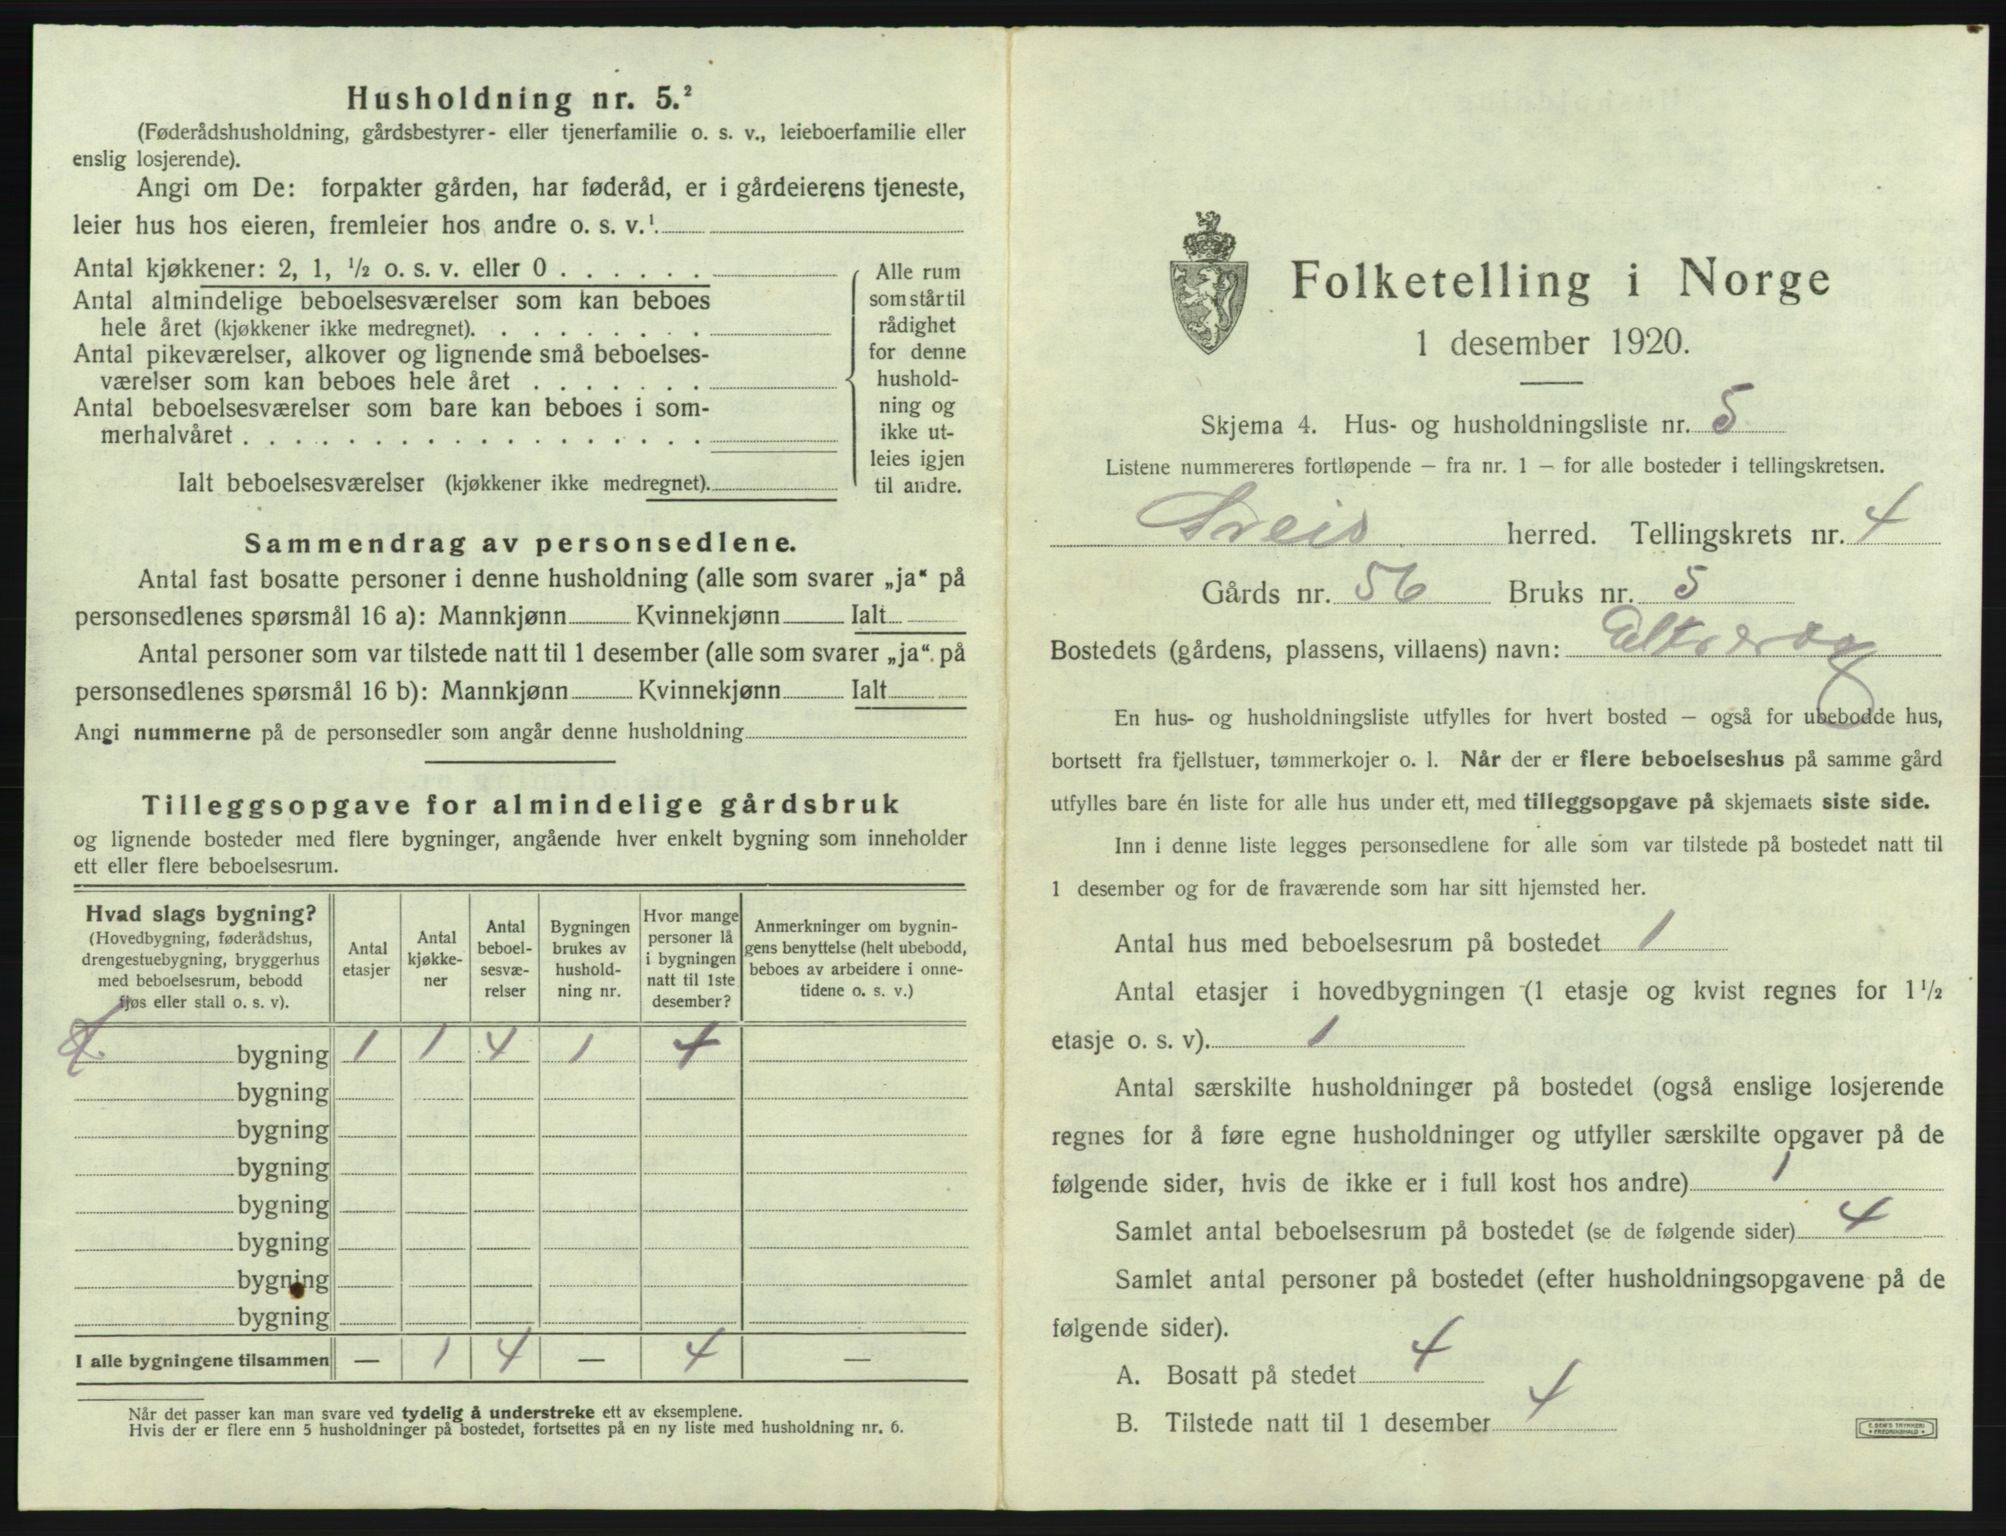 Husholdning nr. 5.²
(Føderådshusholdning, gårdsbestyrer- eller tjenerfamilie o. s. v., leieboerfamilie eller
enslig losjerende).
Angi om De: forpakter gården, har føderåd, er i gårdeierens tjeneste,
leier hus hos eieren, fremleier hos andre o. s. v.¹.
Antal kjøkkener: 2, 1, ½ o. s. v. eller 0 . . . . . .
Antal almindelige beboelsesværelser som kan beboes
hele året (kjøkkener ikke medregnet). . . . . . . . .
Antal pikeværelser, alkover og lignende små beboelses-
værelser som kan beboes hele året . . . . . . .
Antal beboelsesværelser som bare kan beboes i som-
merhalvåret . . . . . . . . . . . . . . . . . .
Ialt beboelsesværelser (kjøkkener ikke medregnet).
Alle rum
som står til
rådighet
for denne
hushold-
ning og
ikke ut-
leies igjen
til andre.
Sammendrag av personsedlene.
Antal fast bosatte personer i denne husholdning (alle som svarer „ja“ på
personsedlenes spørsmål 16 a): Mannkjønn Kvinnekjønn Ialt
Antal personer som var tilstede natt til 1 desember (alle som svarer „ja“ på
personsedlenes spørsmål 16 b): Mannkjønn Kvinnekjønn Ialt
Angi nummerne på de personsedler som angår denne husholdning
Tilleggsopgave for almindelige gårdsbruk
og lignende bosteder med flere bygninger, angående hver enkelt bygning som inneholder
ett eller flere beboelsesrum.
Hvad slags bygning?
(Hovedbygning, føderådshus,
drengestuebygning, bryggerhus
med beboelsesrum, bebodd
fjøs eller stall o. s. v).
Antal
etasjer
Antal
kjøkke-
ner
Antal
beboel-
sesvæ-
relser
Bygningen
brukes av
hushold-
ning nr.
Hvor mange
personer lå
i bygningen
natt til 1ste
desember?
Anmerkninger om bygnin-
gens benyttelse (helt ubebodd,
beboes av arbeidere i onne-
tidene o. s. v.)
bygning 1 1 4 1 4
bygning
bygning
bygning
bygning
bygning
bygning
bygning
I alle bygningene tilsammen — 1 4 — 4 —
Når det passer kan man svare ved tydelig å understreke ett av eksemplene.
Hvis der er flere enn 5 husholdninger på bostedet, fortsettes på en ny liste med husholdning nr. 6.
Folketelling i Norge
1 desember 1920.
Skjema 4. Hus- og husholdningsliste nr. 5
Listene nummereres fortløpende — fra nr. 1 — for alle bosteder i tellingskretsen.
Sveio herred. Tellingskrets nr. 4
Gårds nr. 56 Bruks nr. 5
Bostedets (gårdens, plassens, villaens) navn:
En hus- og husholdningsliste utfylles for hvert bosted — også for ubebodde hus,
bortsett fra fjellstuer, tømmerkojer o. l. Når der er flere beboelseshus på samme gård
utfylles bare én liste for alle hus under ett, med tilleggsopgave på skjemaets siste side.
Inn i denne liste legges personsedlene for alle som var tilstede på bostedet natt til
1 desember og for de fraværende som har sitt hjemsted her.
Antal hus med beboelsesrum på bostedet 1
Antal etasjer i hovedbygningen (1 etasje og kvist regnes for 1½
etasje o. s. v). 1
Antal særskilte husholdninger på bostedet (også enslige losjerende
regnes for å føre egne husholdninger og utfyller særskilte opgaver på de
følgende sider, hvis de ikke er i full kost hos andre) 1
Samlet antal beboelsesrum på bostedet (se de følgende sider) 4
Samlet antal personer på bostedet (efter husholdningsopgavene på de
følgende sider).
A. Bosatt på stedet 4
B. Tilstede natt til 1 desember 4
E. SEM'S TRYKKERI
FREDRIKSHALD